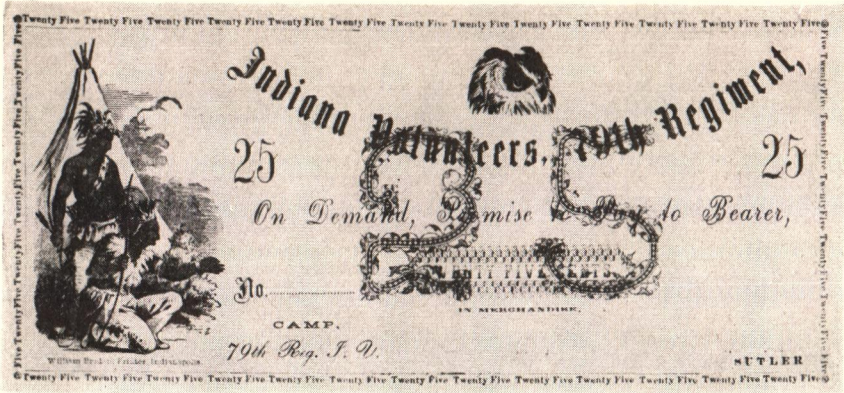 Twenty Five Twenty Five Twenty Five Twenty Five Twenty Five Twenty Five Twenty Five Twenty Five Twenty Five Twenty Five Twenty Five Twenty Five
Indiana Volunteers, 79th Regiment,
25
25
25
On Demand, Promise to Pay to Bearer,
TWENTY FIVE CENTS
No.
IN MERCHANDISE,
CAMP,
79th Reg. I. V.
William Printer, Indianapolis.
SUTLER
Twenty Five Twenty Five Twenty Five Twenty Five Twenty Five Twenty Five Twenty Five Twenty Five Twenty Five Twenty Five Twenty Five Twenty Five